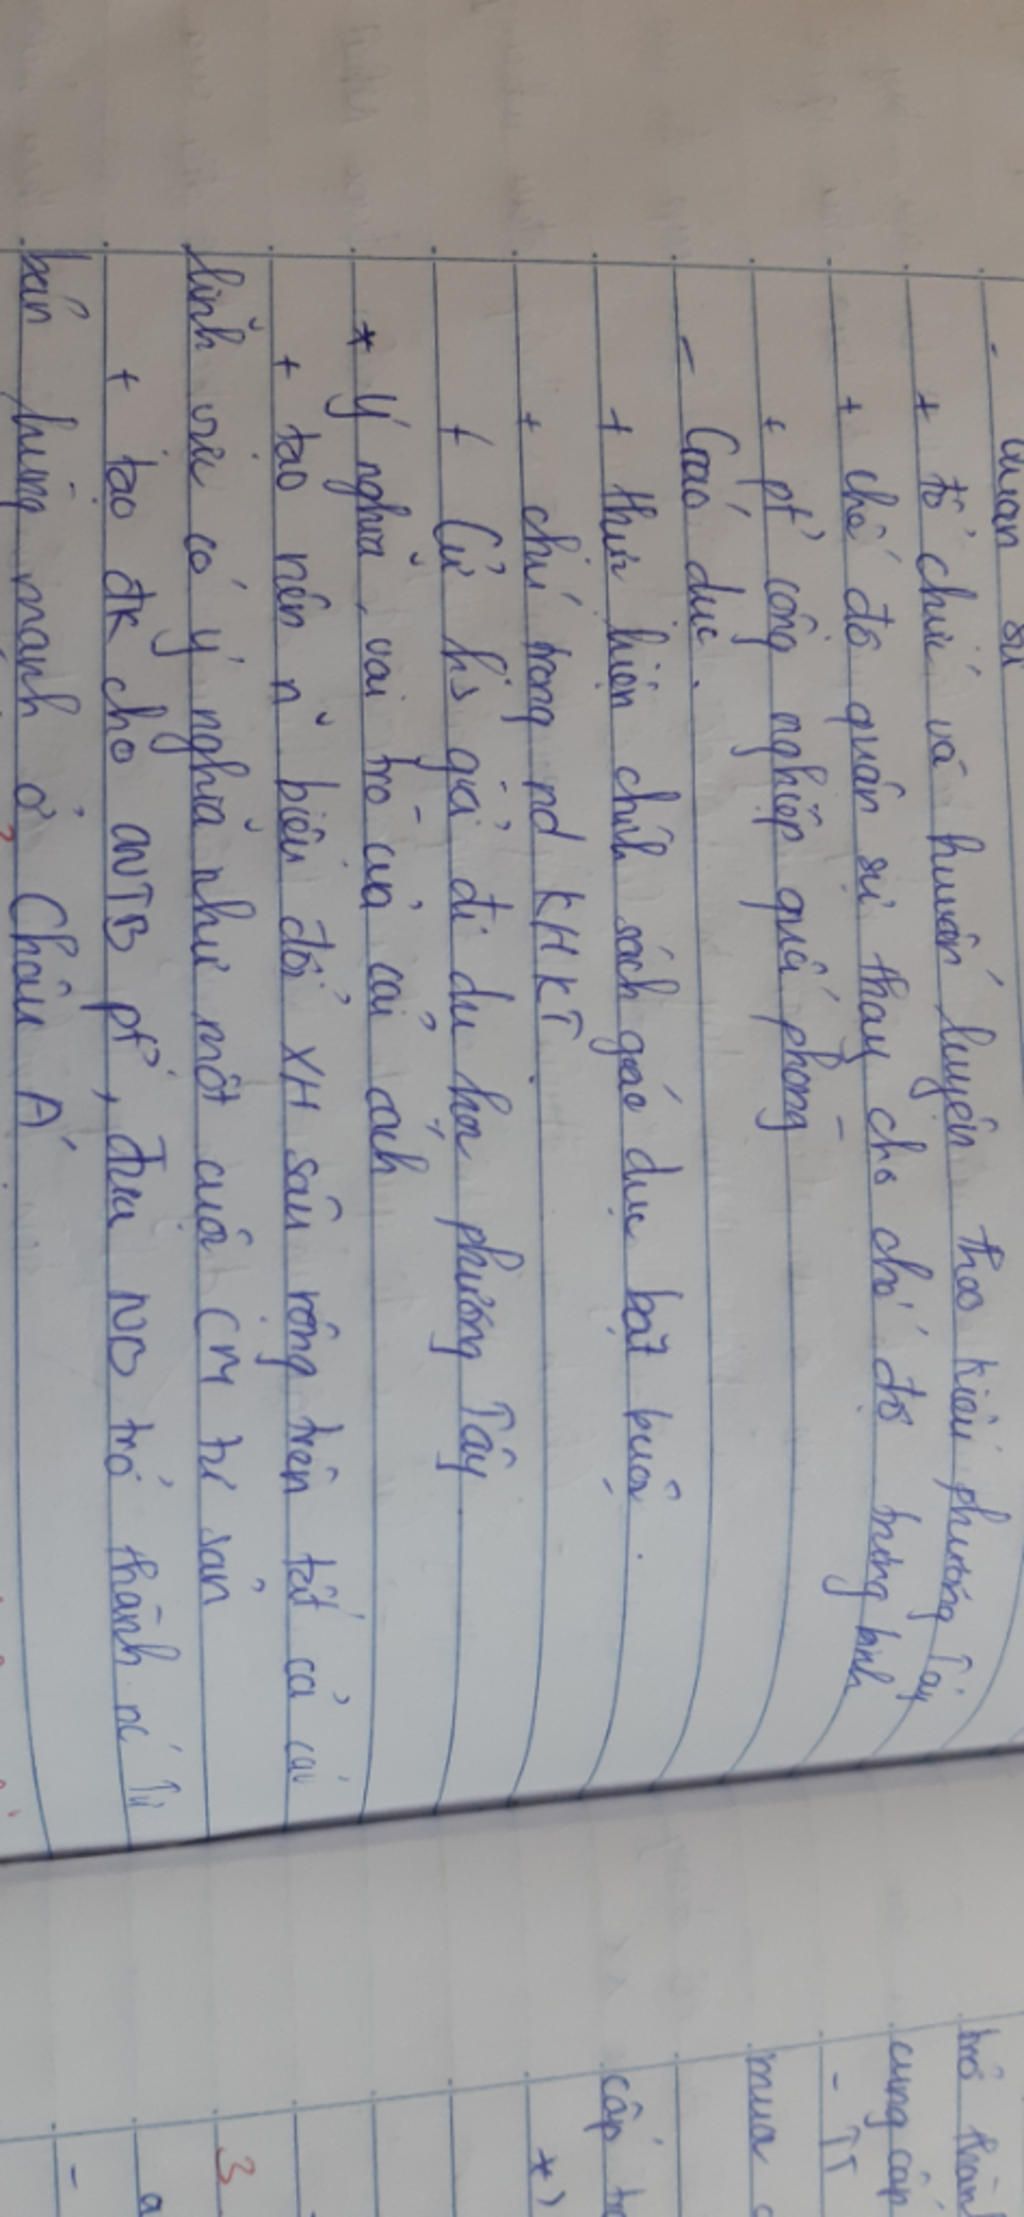 - Quân sự
+ tổ chức và huấn luyện theo kiểu phương Tây
+ chế độ quân sự thay cho chế độ trưng binh
+ pt công nghiệp quốc phòng
- Giáo dục.
+ thực hiện chính sách giáo dục bắt buộc.
+ chú trọng nd KHKT.
+ Cử hs giỏi đi du học phương Tây
* Ý nghĩa, vai trò của cải cách
+ tạo nên n~ biến đổi XH sâu rộng trên tất cả các
lĩnh vực có ý nghĩa như một cuộc CM tư sản
+ tạo đk cho CNTB pt, đưa NB trở thành nc Tư
bản hùng mạnh ở Châu Á
trở thành
cung cấp
- TT
mua
cấp
*)
3
a
-